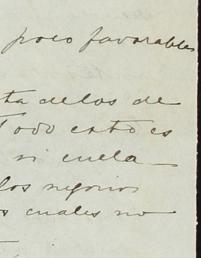 poco favorables
ta de los de
Todo esto es
si cuela
los negocios
s cuales no